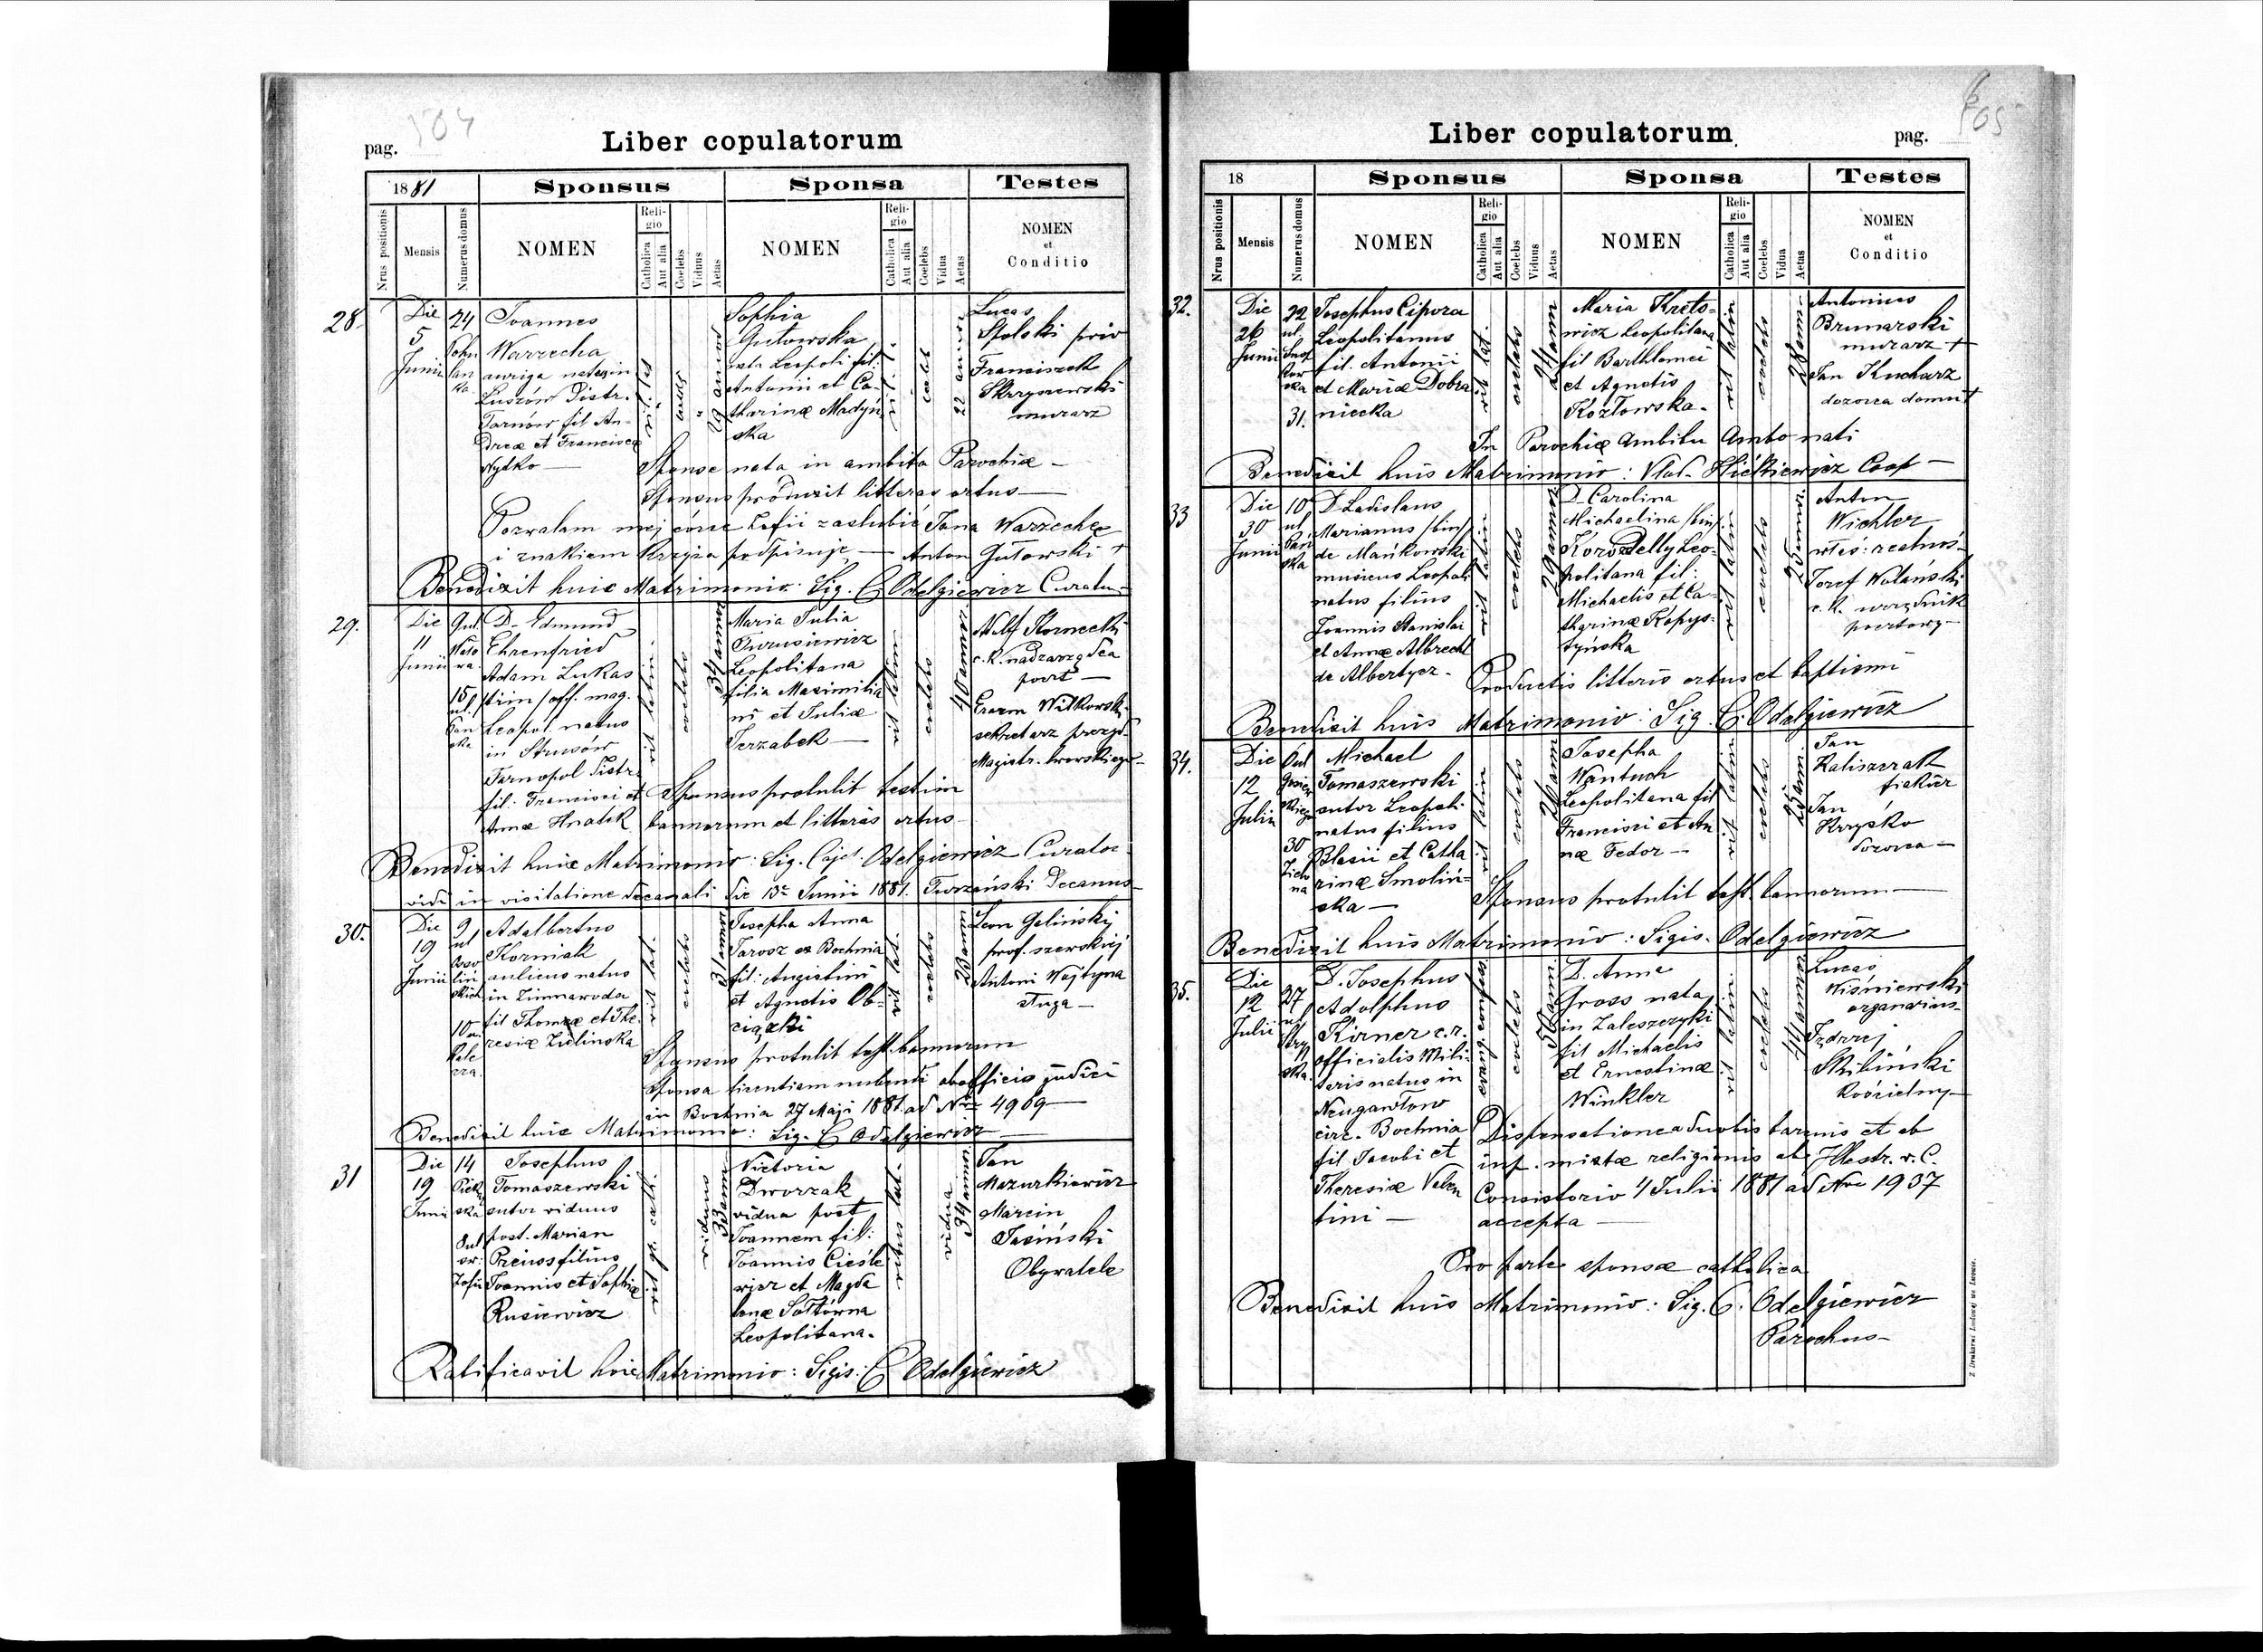 pag. 504
Liber copulatorum
1881
Sponsus
Sponsa
Testes
Nrus positionis
Mensis
Numerus domus
NOMEN
Religio
Catholica
Aut alia
Coelebs
Viduus
Aetas
NOMEN
Religio
Catholica
Aut alia
Coelebs
Vidua
Aetas
NOMEN
et
Conditio
28.
Die
5
Junii
24
Joannes
Warzecha
auriga natus in
Łuszów Distr.
Tarnów fil An-
dreæ et Franciscæ
Wytko —
29 annor
Sophia
Gutowska
nata Leopoli fil:
Antonii et Ca-
tharinæ Madyń
ska
22 annor
Lucas
Spolski priv
Franciszek
Skrzyszewski
murarz
Sponsa nata in ambitu Parochiæ —
Sponsus produxit litteras ortus —
Pozwalam mej córce Zofii zaślubić Jana Warzechę
i znakiem krzyża podpisuję — Anton Gutowski +
Benedixit huic Matrimonio: Sig. C Odelgiewicz Curatus
29.
Die
11
Junii
15
ul.
Pań
ska
D. Edmund
Ehrenfried
Adam Lukas
/trin/ off. mag.
Leopol. natus
in Strusów
Tarnopol Distr.
fil. Francisci et
Annæ Hnatek
rit latin.
coelebs
34 annor
Maria Julia
Turusiewicz
Leopolitana
filia Maximilia
ni et Juliæ
Jerzabek —
rit latin
coelebs
40 annor
Adolf Kornecki
c. k. nadzarządca
poczt —
Erazm Witkowski
sekretarz prezyd.
Magistr. lwowskiego
Sponsus protulit testim
bannorum et litteras ortus
Benedixit huic Matrimonio: Sig. Caj. Odelgiewicz Curatus
vidi in visitatione decanali die 13e Junii 1881. Turzański Decanus
30.
Die
19
Junii
9
ul
Osso
liń
skich
10
Adalbertus
Korniak
aulicus natus
in Zimnawoda
fil Thomæ et The
resiæ Zielinska
rit lat.
coelebs
31 annor
Josepha Anna
Jarosz ex Bochnia
fil: Augustini
et Agnetis Ob-
ciążki
rit lat.
coelebs
28 annor
Leon Geliński
prof. szewskiej
Antoni Wojtyna
sługa —
Sponsus protulit test. bannorum
Sponsa licentiam nubendi ab officio judici
in Bochnia 27 Maji 1881 ad Nrm 4969 —
Benedixit huic Matrimonio: Sig. C Odelgiewicz —
31
Die
19
Junii
14
Piekar
ska
Josephus
Tomaszewski
sutor viduus
post. Marian
Preiuss filius
Joannis et Sophiæ
Rusiewicz
viduus
33 annor
Victoria
Dworzak
vidua post
Joannem fil:
Joannis Cieśle
wicz et Magda
lenæ Sołtówna
Leopolitana.
ritus lat.
vidua
34 annor
Jan
Mazurkiewicz
Marcin
Jasiński
Obywatele
Ratificavit huic Matrimonio: Sigis: C Odelgiewicz
Liber copulatorum
pag. 505
18
Sponsus
Sponsa
Testes
Nrus positionis
Mensis
Numerus domus
NOMEN
Religio
Catholica
Aut alia
Coelebs
Viduus
Aetas
NOMEN
Religio
Catholica
Aut alia
Coelebs
Vidua
Aetas
NOMEN
et
Conditio
32.
Die
26
Junii
22
ul.
31.
Josephus Cipora
Leopolitanus
fil. Antonii
et Mariæ Dobra
niecka
rit lat.
coelebs
24 anni
Maria Kreto-
wicz Leopolitana
fil Barthlomei
et Agnetis
Kozłowska.
rit latin
coelebs
28 anni
Antonius
Brunarski
murarz +
Jan Kucharz
dozorca domu +
In Parochiæ Ambitu Ambo nati
Benedixit huic Matrimonio: Vlad. Hićkiewicz Coop —
33
Die
30
Junii
10
ul
Pań
ska
D. Ladislaus
Marianus /bin/
de Mańkowski
musicus Leopoli
natus filius
Joannis Stanislai
et Annæ Albrecht
de Albertycz.
rit latin
coelebs
29 annor
D. Carolina
Michaelina /bin/
Korodelly Leo-
politana fil:
Michaelis et Ca-
tharinæ Kopys-
tyńska
rit latin
coelebs
25 annor.
Anton
Wichler
właś: realnoś-
Józef Wolański
c. k. urzędnik
pocztowy —
Productis litteris ortus et baptismi
Benedixit huic Matrimonio: Sig. C. Odelgiewicz
34.
Die
12
Julii
30
Zielo
na
Michael
Tomaszewski
sutor Leopoli
natus filius
Blasii et Catha
rinæ Smoliń-
ska —
rit latin
coelebs
26 anni
Josepha
Wantuch
Leopolitana fil
Francisci et An
næ Fedor —
rit latin
coelebs
25 anni
Jan
Kaliszczak
fiakier
Jan
Krzyśko
dozorca —
Sponsus protulit test. bannorum —
Benedixit huic Matrimonio: Sigis. Odelgiewicz
35.
Die
12
Julii
27
ul
Stryj
ska.
D. Josephus
Adolphus
Kirner c. r.
officialis Mili-
taris natus in
Neugawłow
circ. Bochnia
fil Jacobi et
Theresiæ Valen
tini —
evang. confess.
coelebs
D. Anna
Gross nata
in Zaleszczyki
fil Michaelis
et Ernestinæ
Winkler
rit latin.
coelebs
41 annor
Lucas
Wiśniewski
organarius
Jędrzej
Skibiński
Kościelny —
Dispensatione a duobis bannis et ab
imp. mixtæ religionis ab Illustr. r. C.
Consistorio 4 Julii 1881 ad Nro 1937
accepta —
Pro parte sponsæ catholica
Benedixit huic Matrimonio: Sig. C. Odelgiewicz
Parochus —